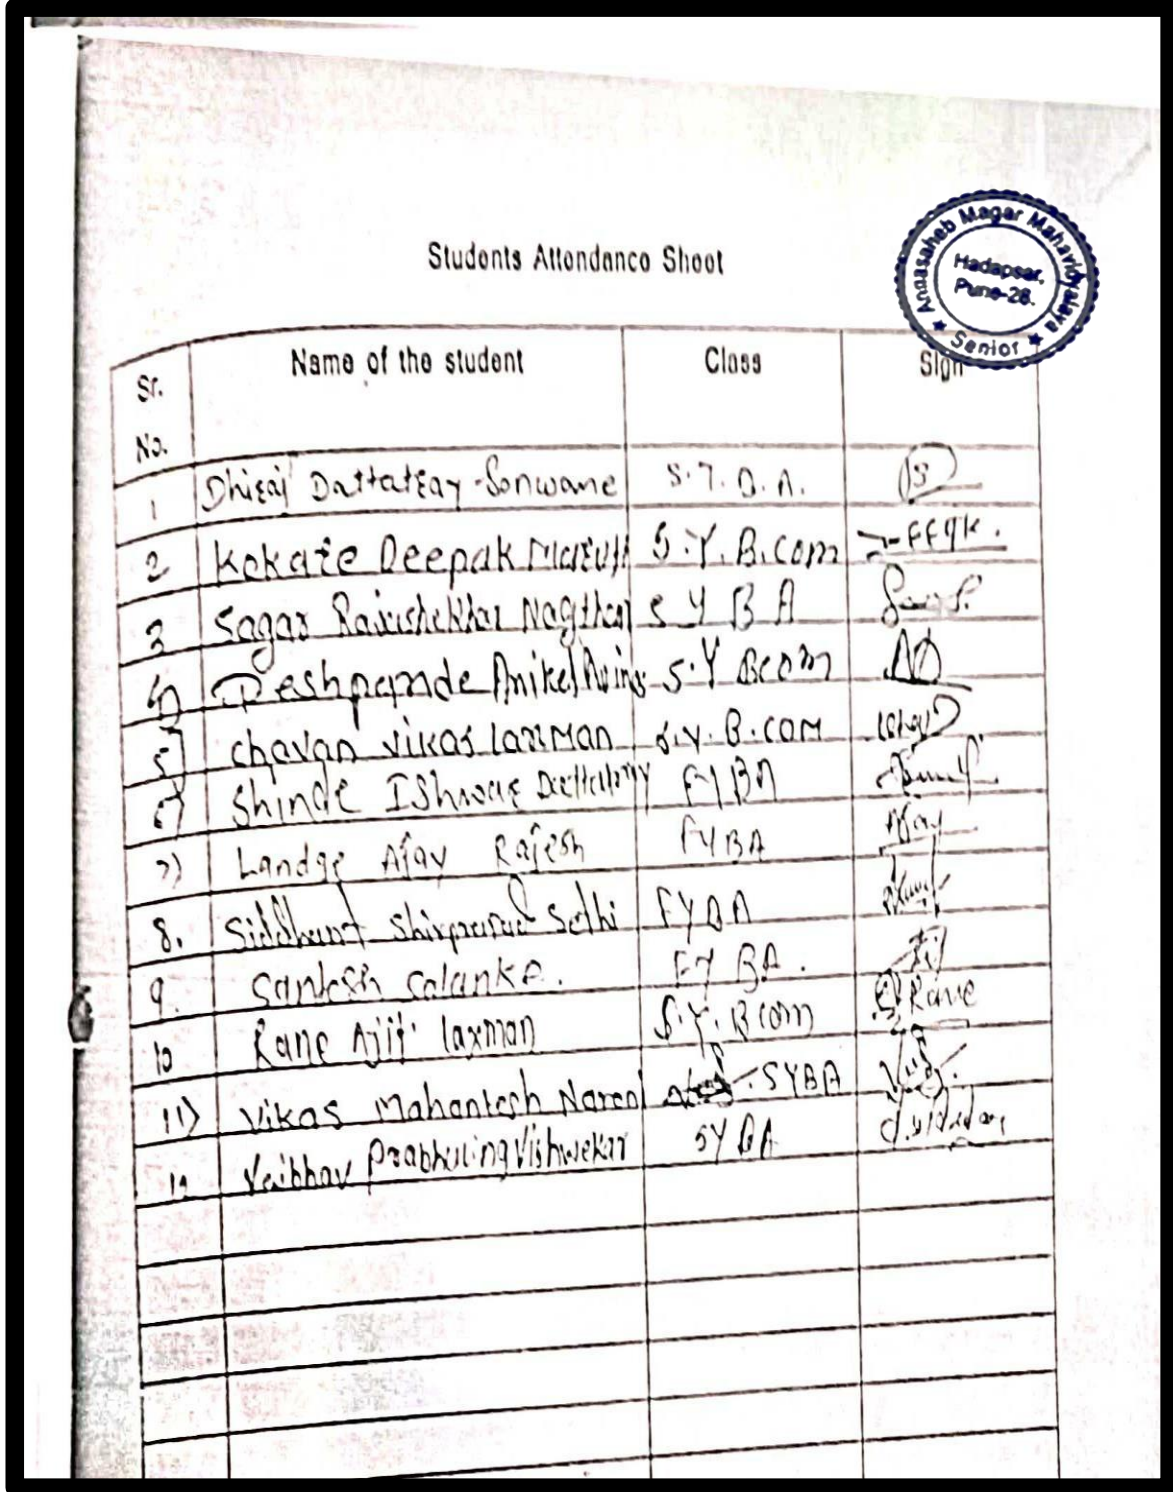 Annasaheb Magar Mahavidyalaya
Hadapsar,
Pune-28.
★ Senior ★
Students Attendance Sheet
Sr. No. Name of the student Class Sign
1 Dhiraj Dattatray Sonwane S.Y.B.A.
2 Kokate Deepak Maruti S.Y.B.com
3 Sagar Rajushekhar S Y B A
4) Deshpande Aniket S.Y Bcom
5) chavan vikas laxman S.Y.B.COM
6) Shinde Ishwar Dattatray FYBA
7) Landge Ajay Rajesh FYBA Ajay
8. Siddhant Shivprasad Sethi FYBA
9. Santosh Salanke. FY BA.
10 Rane Ajit laxman S.Y.B com Rane
11) Vikas Mahantesh Naren SYBA
12 Vaibhav Prabhuling Vishwekar SY BA